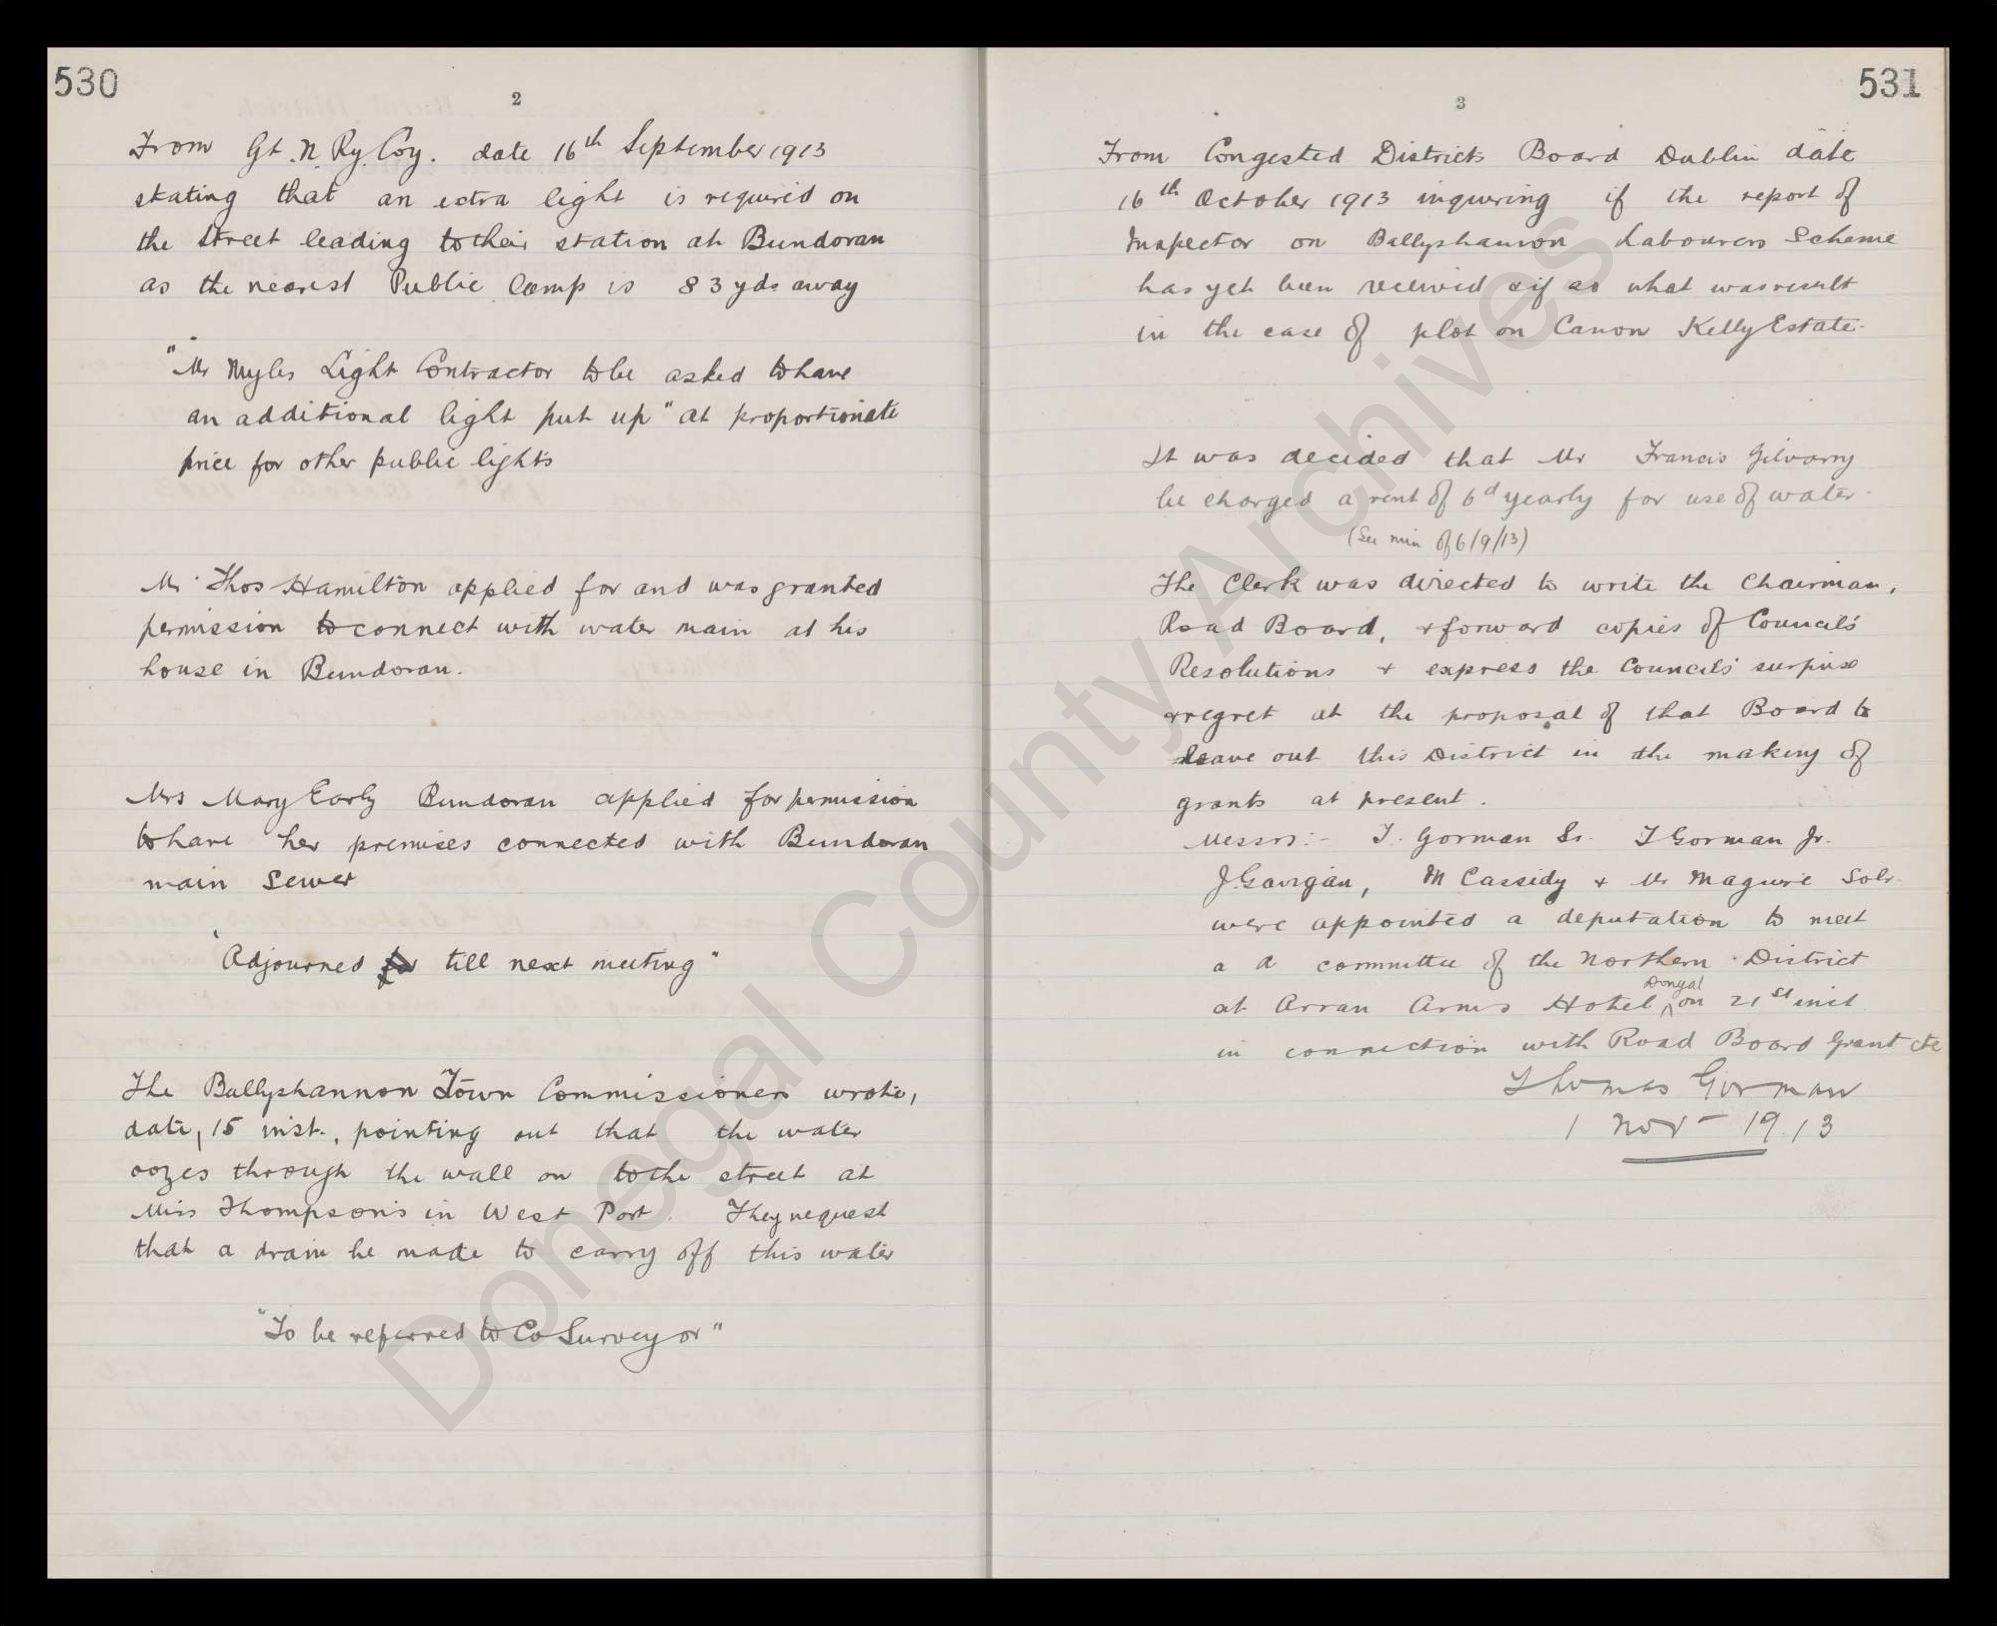 530
2
From Gt. N. Ry. Coy. date 16th September 1913
stating that an extra light is required on
the street leading to their station at Bundoran
as the nearest Public lamp is 83 yds away
"Mr Myles Light Contractor to be asked to have
an additional light put up" at proportionate
price for other public lights
Mr. Thos Hamilton applied for and was granted
permission to connect with water main at his
house in Bundoran.
Mrs Mary Early Bundoran applied for permission
to have her premises connected with Bundoran
main Sewer
"Adjourned for till next meeting"
The Ballyshannon Town Commissioners wrote,
date, 15 inst., pointing out that the water
oozes through the wall on to the street at
Miss Thompson's in West Port. They request
that a drain be made to carry off this water
"To be referred to Co Surveyor"
531
3
From Congested Districts Board Dublin date
16th October 1913 inquiring if the report of
Inspector on Ballyshannon Labourers Scheme
has yet been received & if so what was result
in the case of plot on Canon Kelly Estate.
It was decided that Mr Francis Gilvarry
be charged a rent of 6d yearly for use of water.
(See min of 6/9/13)
The Clerk was directed to write the Chairman,
Road Board, & forward copies of Council's
Resolutions & express the Council's surprise
& regret at the proposal of that Board to
leave out this District in the making of
grants at present.
Messrs:- T. Gorman Sr. T Gorman Jr.
J. Gavigan, M Cassidy & Mr Maguire Solr.
were appointed a deputation to meet
a a committee of the Northern District
at Arran Arms Hotel, Dongal on 21st inst
in connection with Road Board Grant etc
Thomas Gorman
1 Nov - 1913
Donegal County Archives